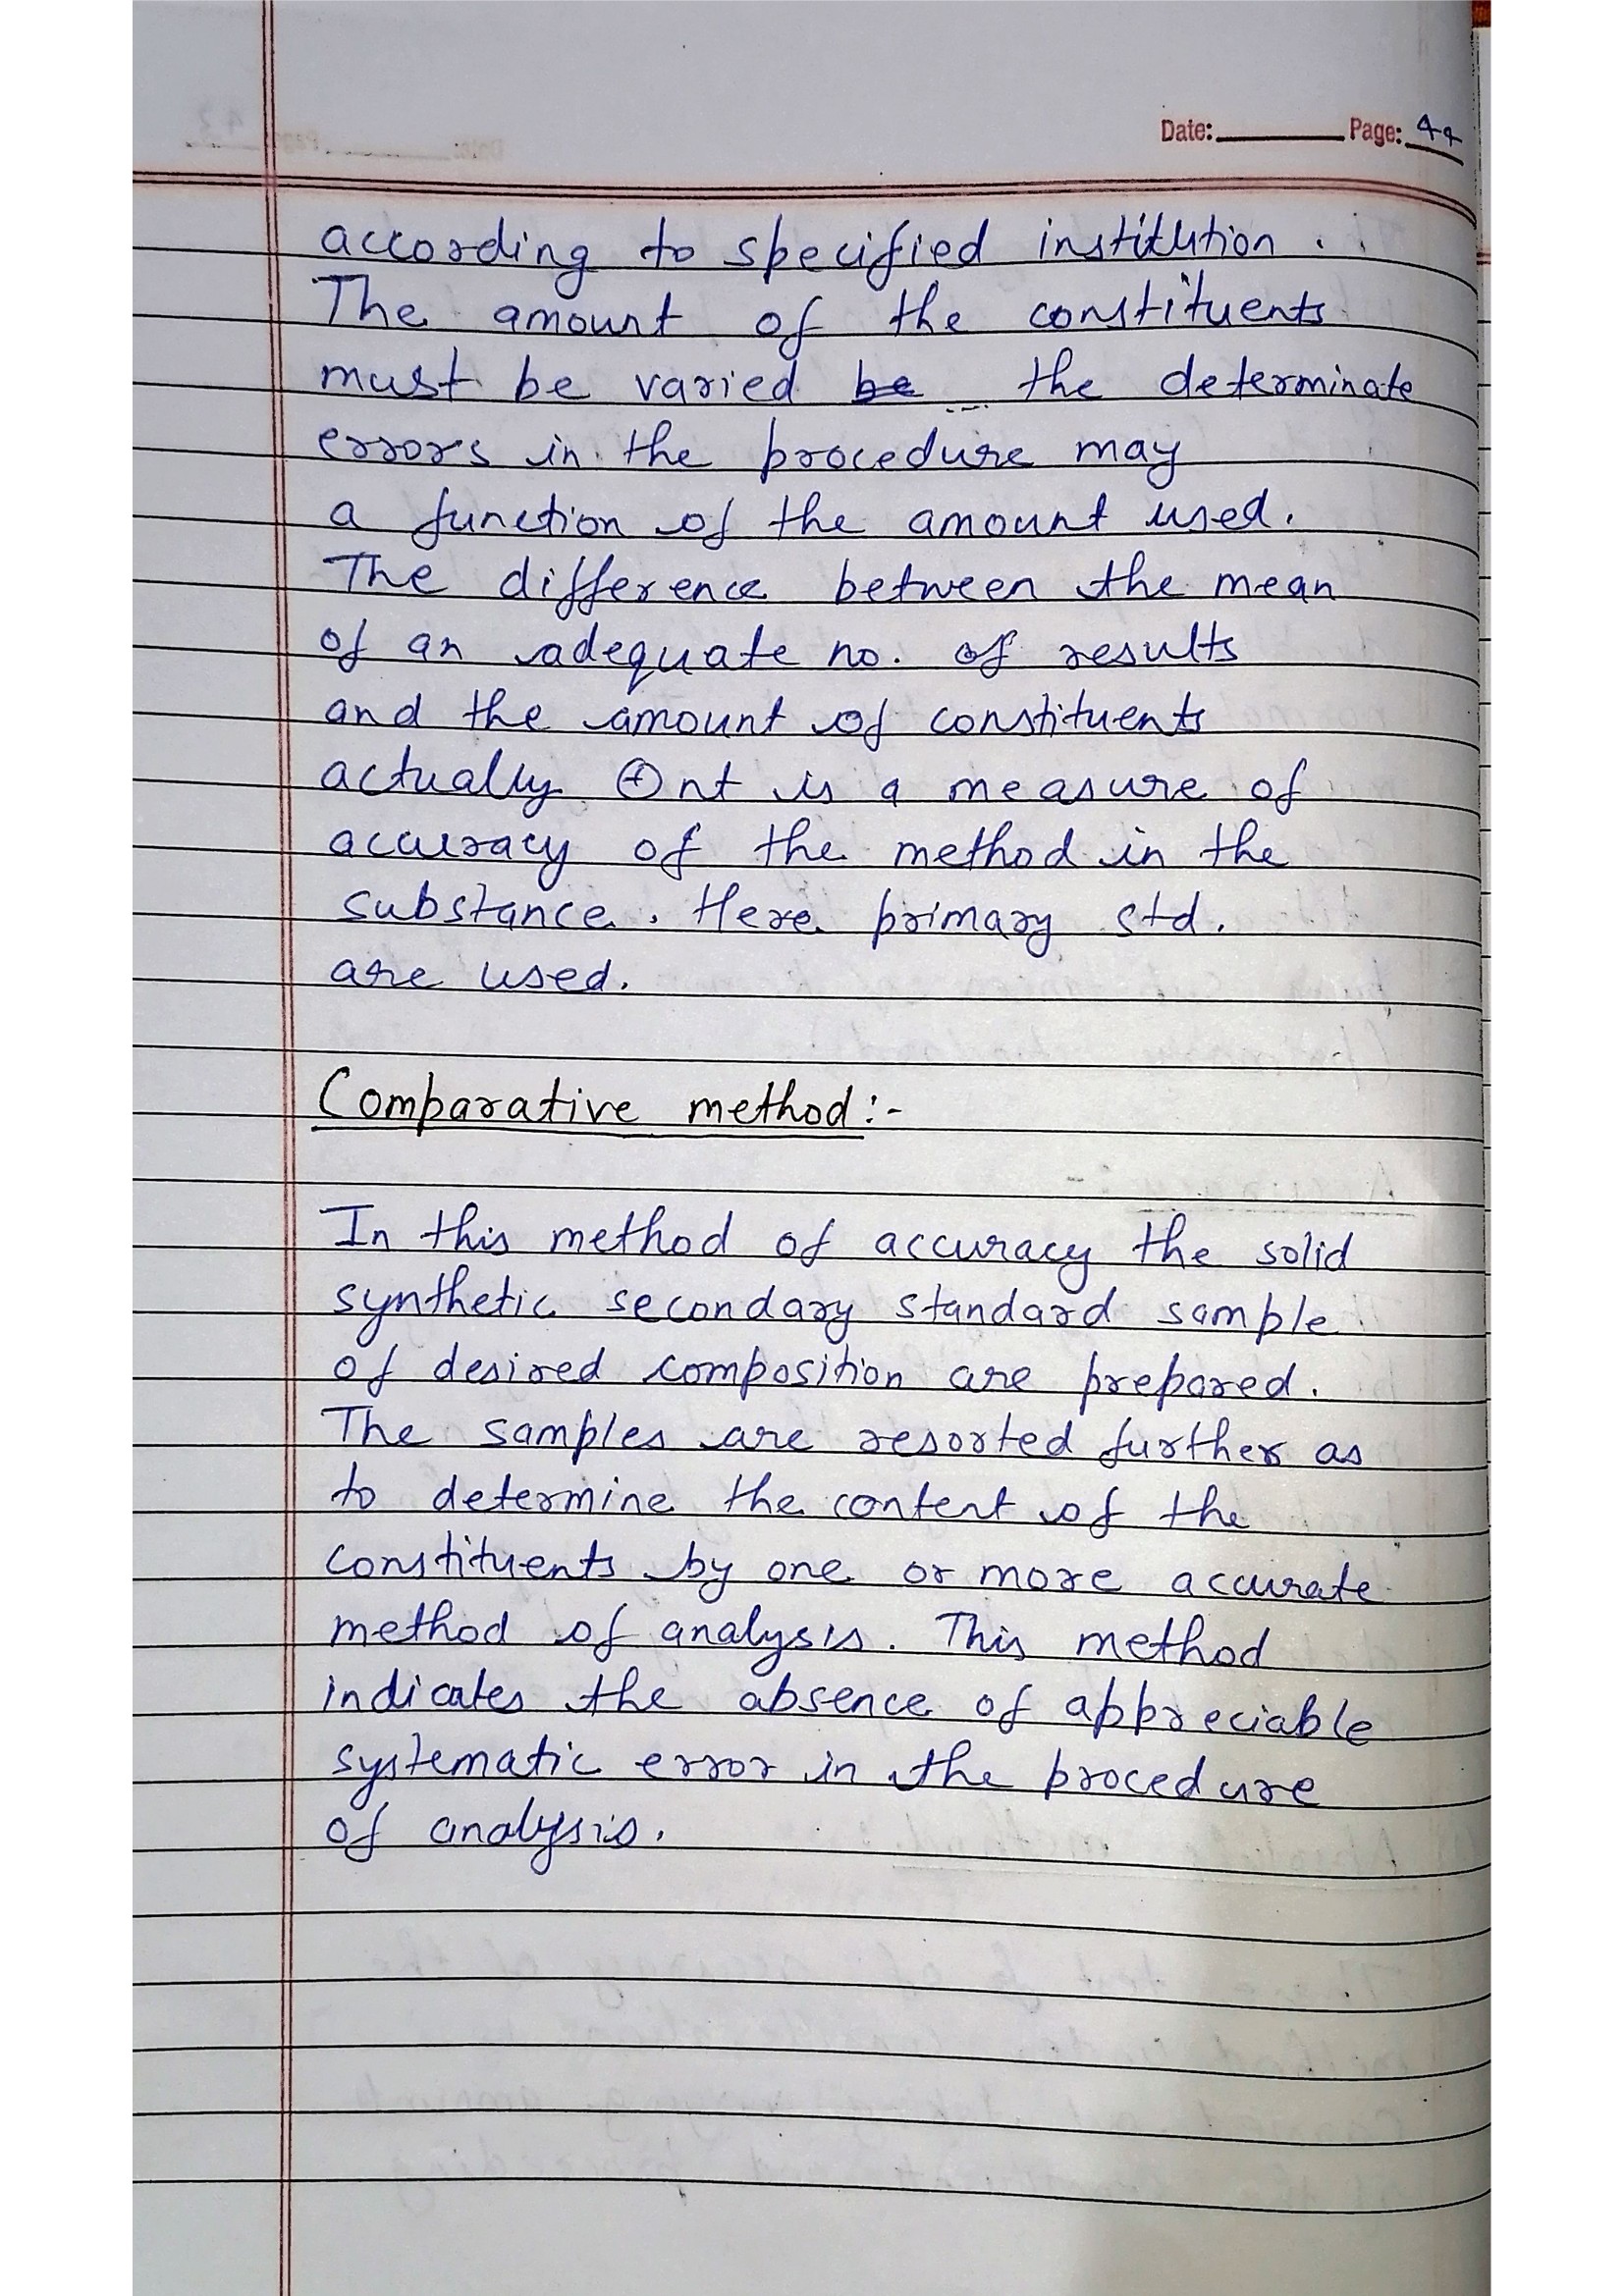 Date: Page: 44
according to specified institution.
The amount of the constituents
must be varied be the determinate
errors in the procedure may
a function of the amount used.
The difference between the mean
of an adequate no. of results
and the amount of constituents
actually ⊕nt is a measure of
accuracy of the method in the
substance. Here primary std.
are used.
Comparative method:-
In this method of accuracy the solid
synthetic secondary standard sample
of desired composition are prepared.
The samples are resorted further as
to determine the content of the
constituents by one or more accurate
method of analysis. This method
indicates the absence of appreciable
systematic error in the procedure
of analysis.